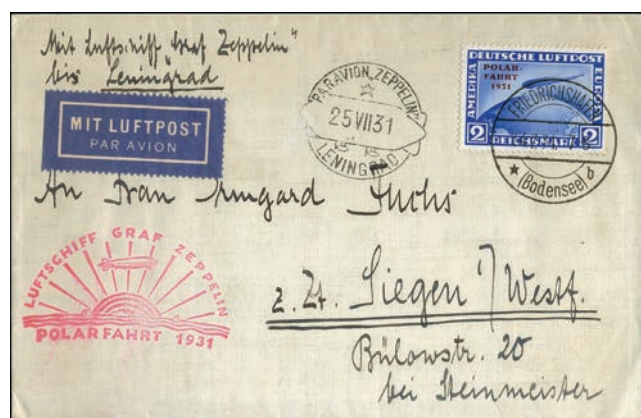 Mit Luftschiff "Graf Zeppelin"
bis Leningrad
MIT LUFTPOST
PAR AVION
"PAR AVION ZEPPELIN"
25 VII 31
LENINGRAD
DEUTSCHE LUFTPOST
POLAR-
FAHRT
1931
AMERIKA
EUROPA
2 REICHSMARK 2
FRIEDRICHSHAFEN
(Bodensee) d
An Frau Irmgard Fuchs
z. Zt. Siegen i/Westf.
Bülowstr. 20
bei Steinmeister
LUFTSCHIFF GRAF ZEPPELIN
POLARFAHRT 1931